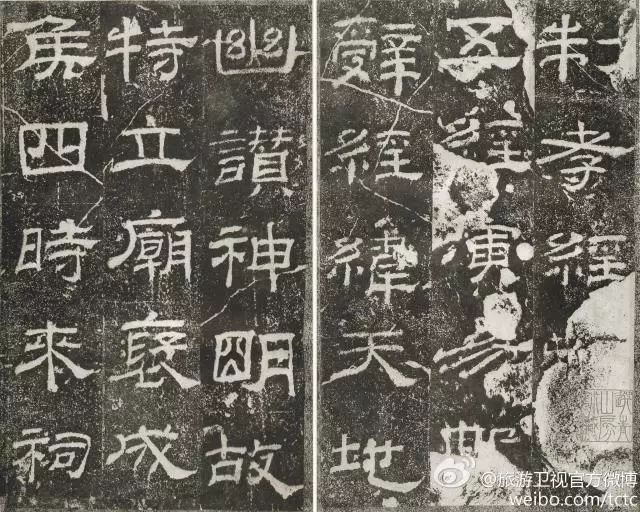 制孝經
五經演易
辭經緯天地
幽讃神明故
特立廟褒成
侯四時来祠
@旅游卫视官方微博
weibo.com/tctc